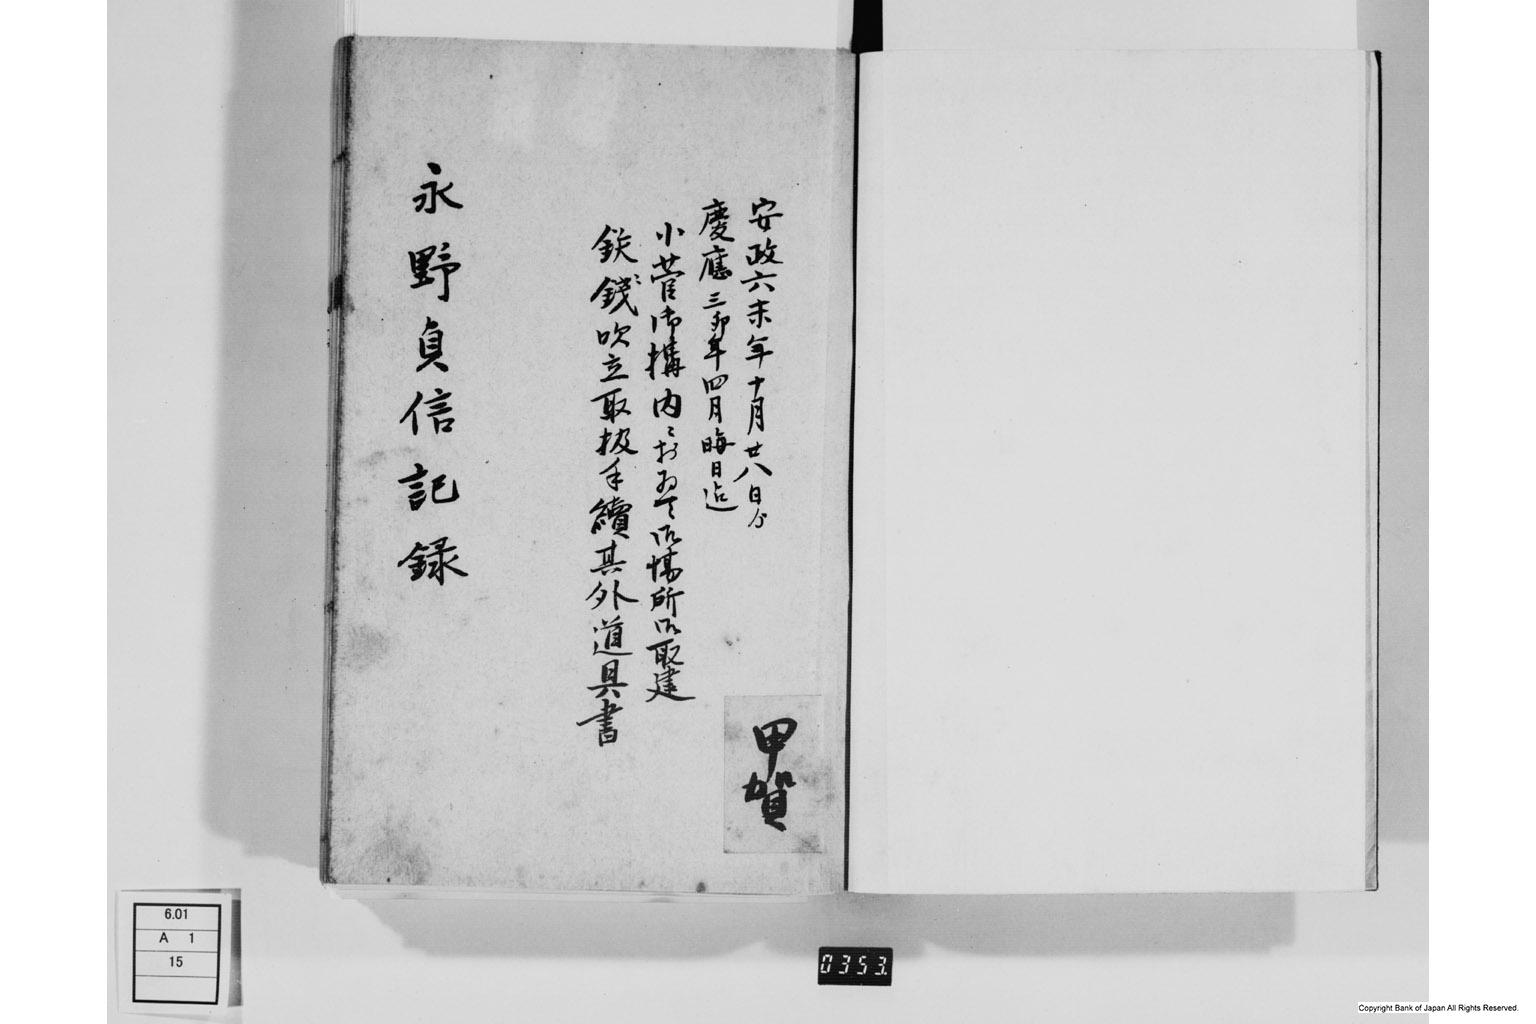 安政六未年十月廿八日ゟ
慶應三卯年四月晦日迠
小菅御構内ニおゐて御場所御取建
鉄錢吹立取扱手續其外道具書
永野貞信記録
甲賀
6.01
A 1
15
0353.
Copyright Bank of Japan All Rights Reserved.